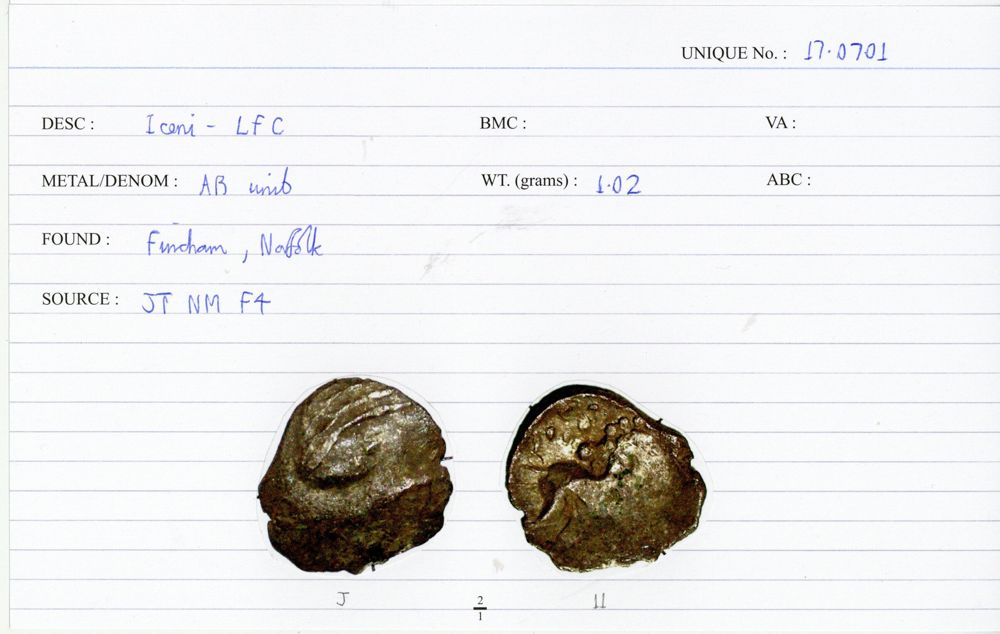 UNIQUE No. : 17.0701
DESC : Iceni - LFC BMC : VA :
METAL/DENOM : AR unit WT. (grams) : 1.02 ABC :
FOUND : Fincham, Norfolk
SOURCE : JT NM F4
J 2/1 11